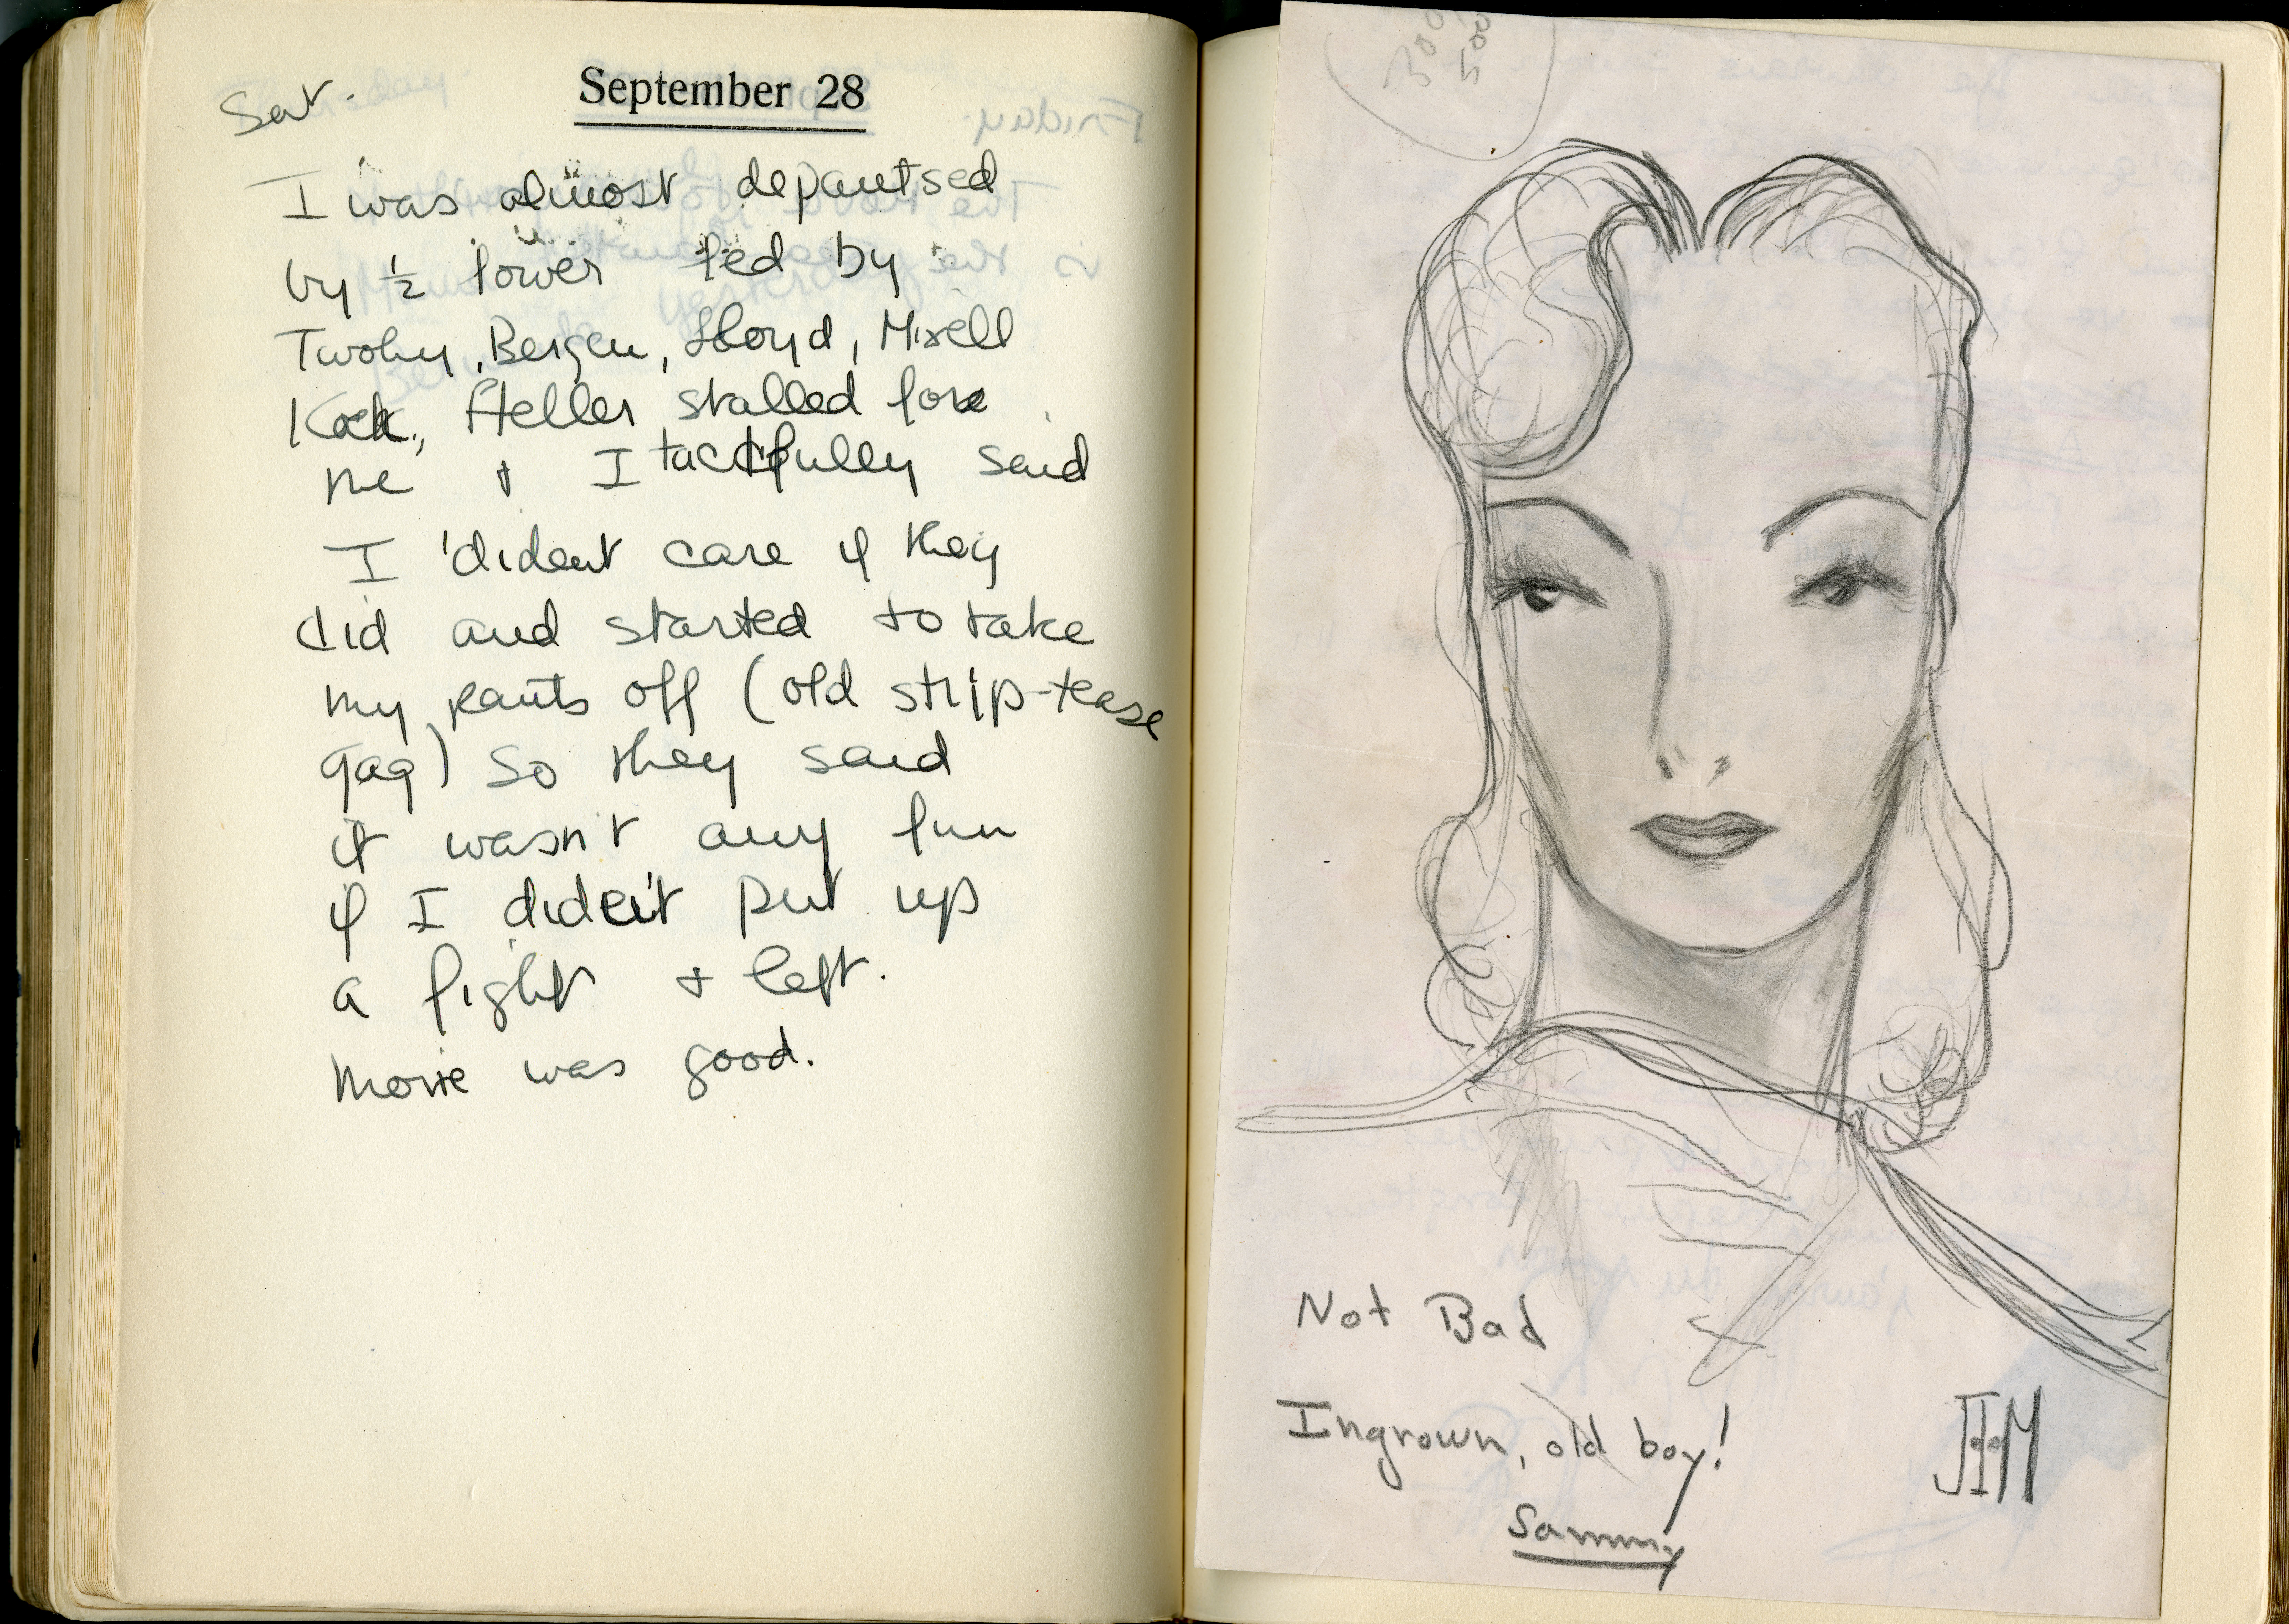 Sat.
September 28
I was almost depantsed
by ½ lower led by
Twohy, Bergen, Lloyd, Mixell
Koch, Heller stalled for
me + I tactfully said
I dident care if they
did and started to take
my pants off (old strip-tease
gag) so they said
it wasn't any fun
if I dident put up
a fight + left.
movie was good.
Friday
300
500
Not Bad
Ingrown, old boy!
Sammy
JHM